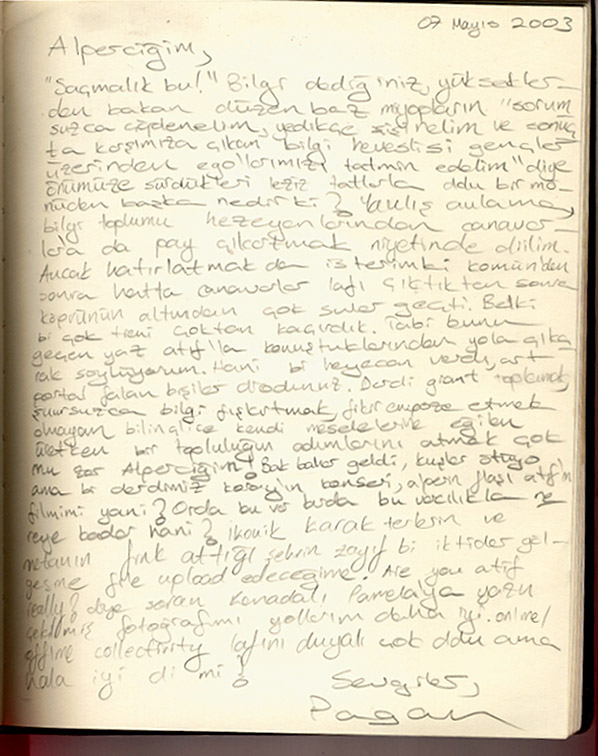 07 Mayıs 2003
Alperciğim,
"Saçmalık bu!" Bilgi dediğiniz, yüksekler-
den bakan düzenbaz miyopların "sorum
suzca eğlenelim, yedikçe şişinelim ve sonuç
ta karşımıza çıkan bilgi heveslisi gençler
üzerinden ego'larımızı tatmin edelim" diye
önümüze sürdükleri leziz tatlarla dolu bir
başka nedir ki? Yanlış anlama,
bilgi toplumu hezeyanlarından canavar-
lara da pay çıkartmak niyetinde diilim.
Ancak hatırlatmak da isterimki komün'den
sonra hatta canavarlar lafı çıktıktan sonra
köprünün altından çok sular geçti. Belki
bi çok treni çoktan kaçırdık. Tabi bunu
geçen yaz atıf'la konuştuklarından yola çıka
rak söylüyorum. Hani bi heyecan vardı, art
portal falan bişiler diyodunuz. Derdi giant toplamak,
şuursuzca bilgi fışkırtmak, fikir empoze etmek
olmayan bilinçlice kendi meselelerine eğilen
üretken bir topluluğun adımlarını atmak çok
mu zor Alperciğim? Bak bahar geldi, kuşlar ötüyo
ana bi derdimiz koray'ın konseri, alperin flaşı atıf'ın
filmimi yani? Orda bu var burda bu vacılıkla ne
reye kadar hani? İkonik karakterlerin ve
metanın fink attığı şehrin zayıf bi iktidar gel-
geşme file upload edeceğime. Are you atıf
really? diye soran Kanadalı Pamela'ya yazın
çekilmiş fotoğrafımı yollarım daha iyi. online/
offline collectivity lafını duyalı çok oldu ama
hala iyi di mi?
Sevgiler,
Pagan